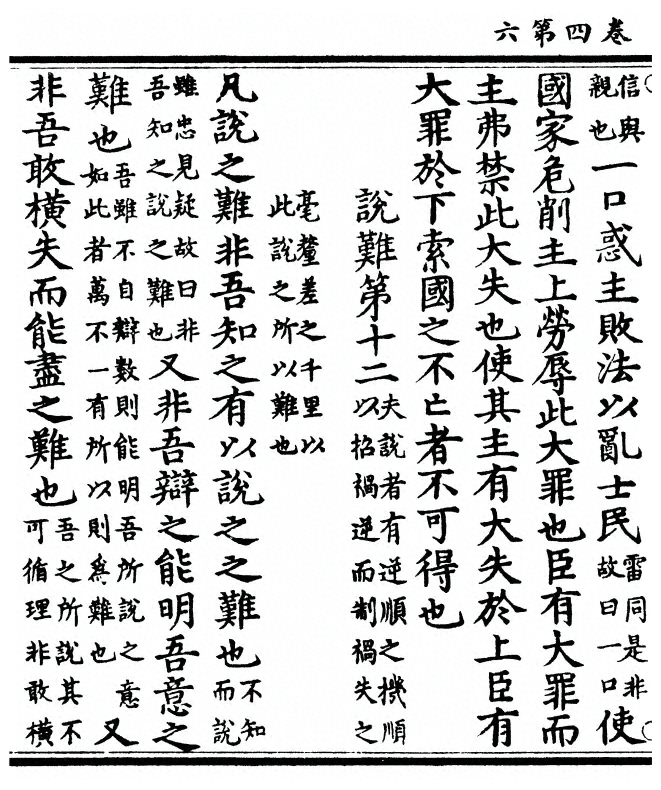 卷四第六
信與親也一口惑主敗法以亂士民雷同是非故曰一口使
國家危削主上勞辱此大罪也臣有大罪而
主弗禁此大失也使其主有大失於上臣有
大罪於下索國之不亡者不可得也
說難第十二夫說者有逆順之機順以招禍逆而制禍失之
毫釐差之千里以此說之所以難也
凡說之難非吾知之有以說之之難也不知而說
雖忠見疑故曰非吾知之說之難也又非吾辯之能明吾意之
難也吾雖不自辯數則能明吾所說之意如此者萬不一有所以則為難也又
非吾敢橫失而能盡之難也吾之所說其不可循理非敢橫